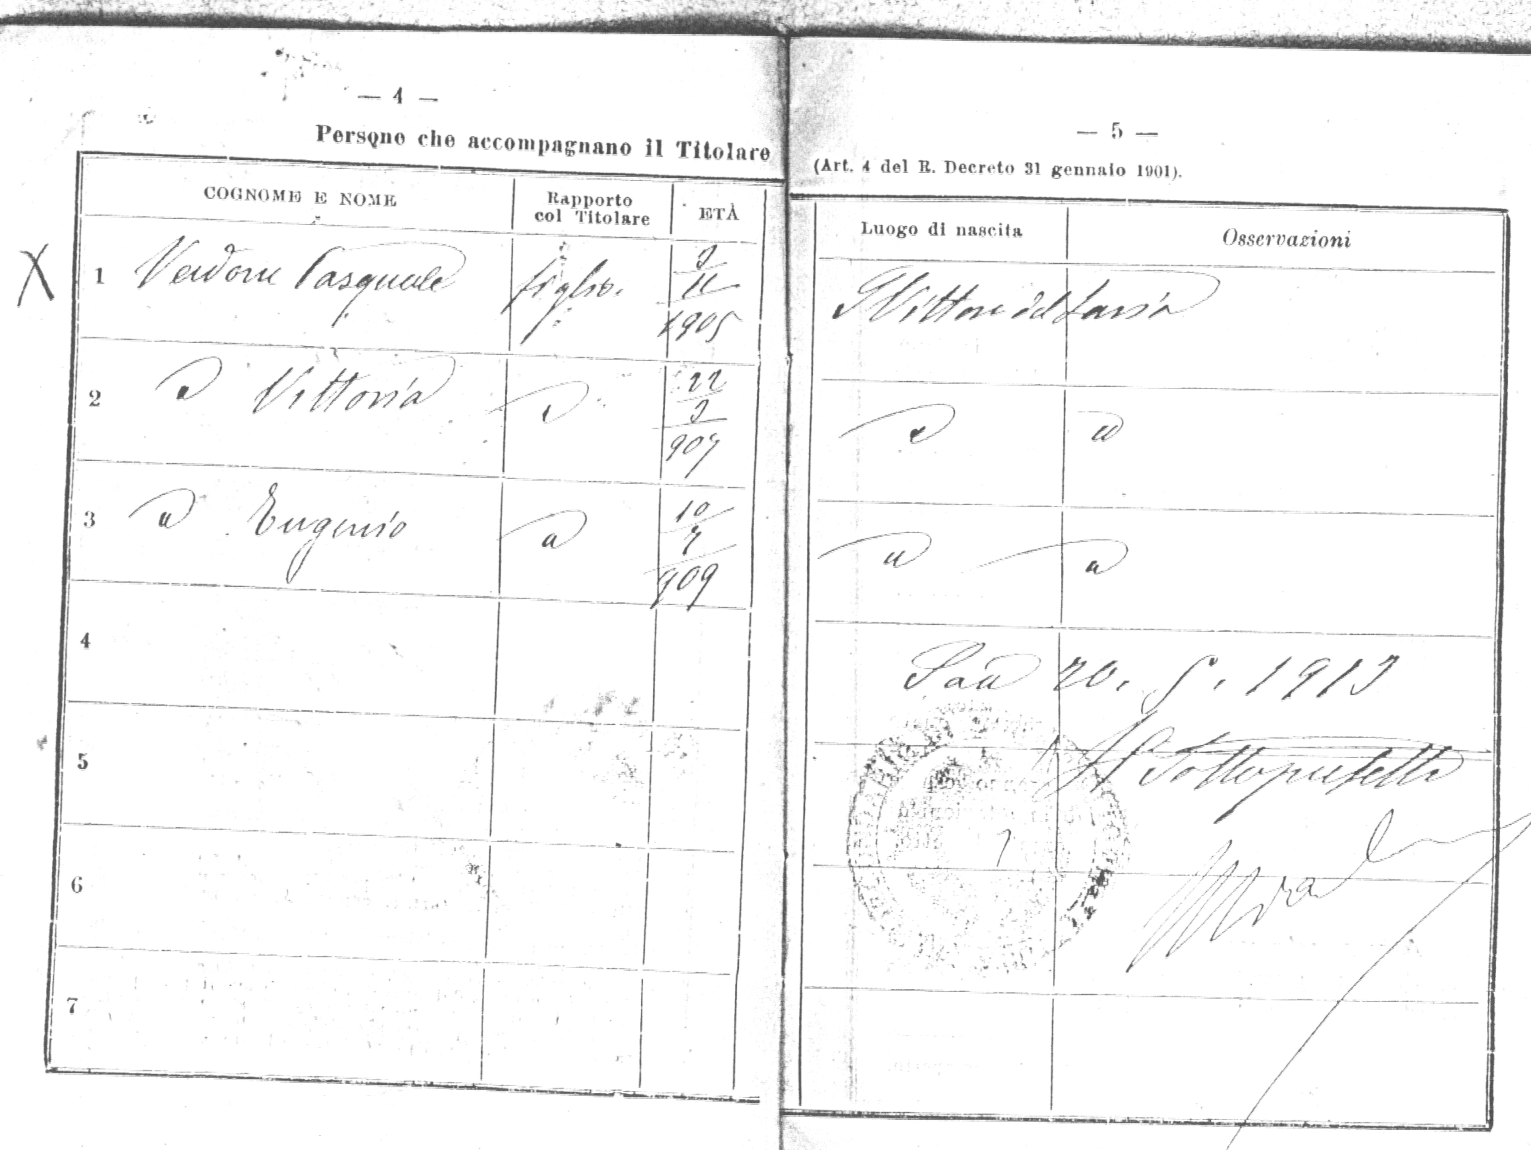 — 4 —
Persone che accompagnano il Titolare
COGNOME E NOME
Rapporto
col Titolare
ETÀ
X 1 Verdone Pasquale figlio.
11
1905
2 " Vittoria "
22
907
3 " Eugenio "
10
7
909
4
5
6
7
— 5 —
(Art. 4 del R. Decreto 31 gennaio 1901).
Luogo di nascita
Osservazioni
S Vittore del Lazio
" "
" "
1913
Il Sottoprefetto